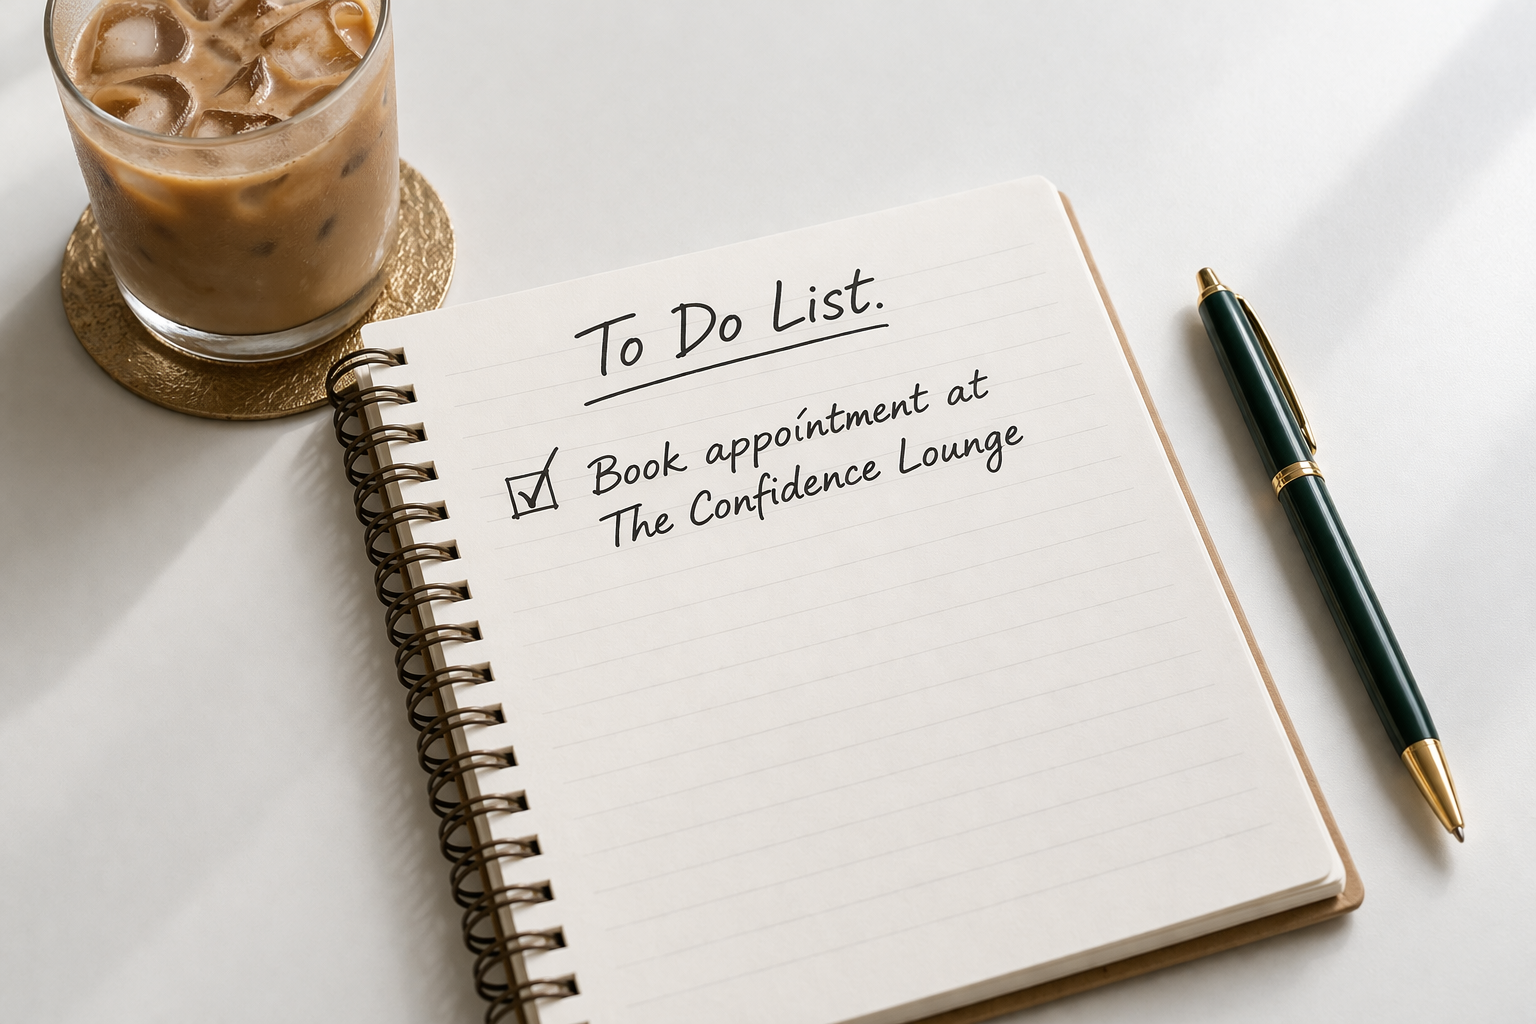 To Do List.
Book appointment at
The Confidence Lounge